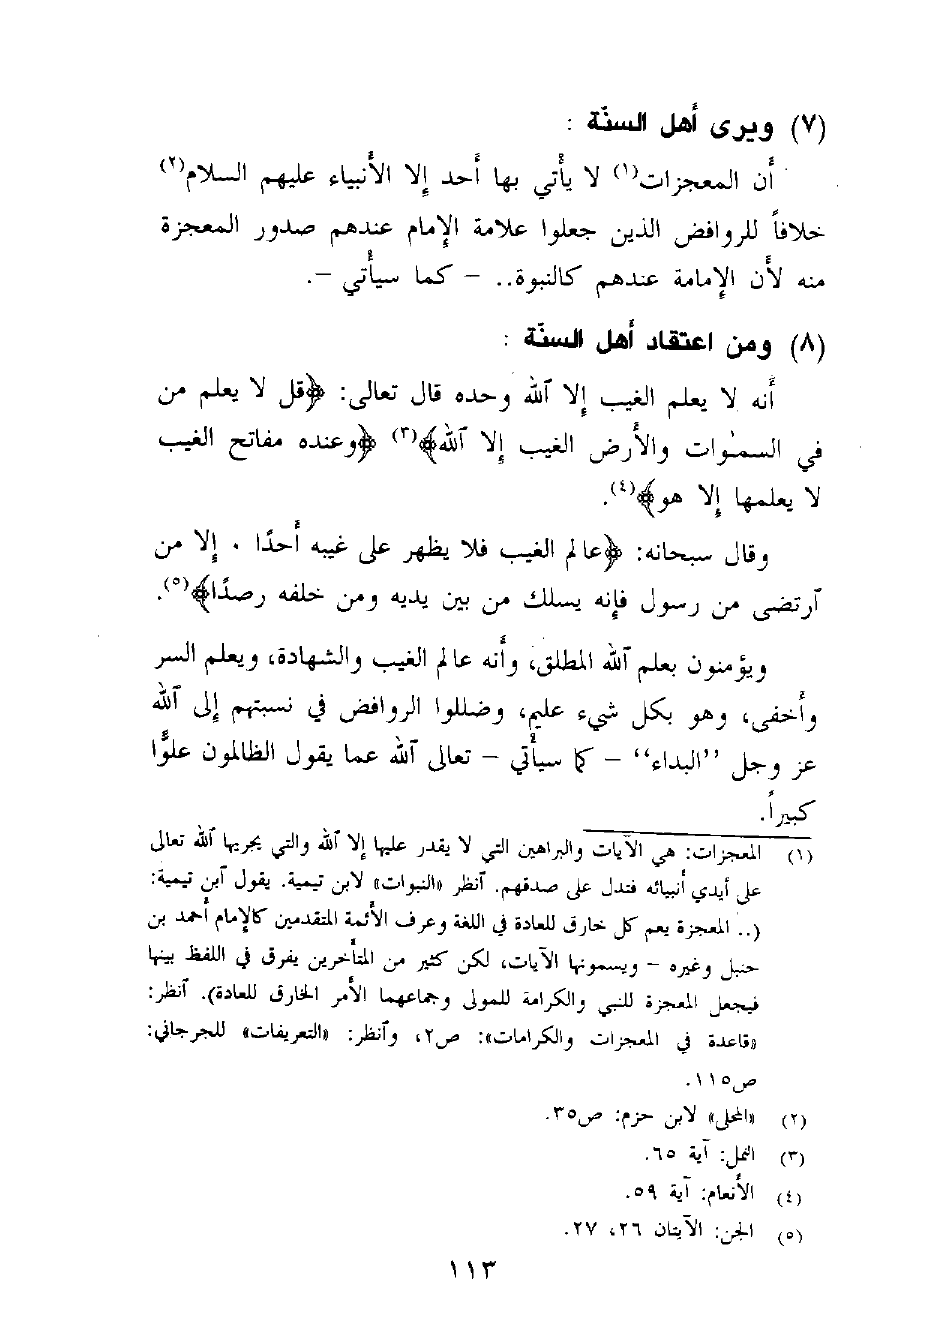 (٧) ويرى أهل السنّة :
أن المعجزات(١) لا يأتي بها أحد إلا الأنبياء عليهم السلام(٢)
خلافاً للروافض الذين جعلوا علامة الإمام عندهم صدور المعجزة
منه لأن الإمامة عندهم كالنبوة.. – كما سيأتي –.
(٨) ومن اعتقاد أهل السنّة :
أنه لا يعلم الغيب إلا الله وحده قال تعالى: ﴿قل لا يعلم من
في السموات والأرض الغيب إلا الله﴾(٣) ﴿وعنده مفاتح الغيب
لا يعلمها إلا هو﴾(٤).
وقال سبحانه: ﴿عالم الغيب فلا يظهر على غيبه أحدًا . إلا من
آرتضى من رسول فإنه يسلك من بين يديه ومن خلفه رصدًا﴾(٥).
ويؤمنون بعلم الله المطلق، وأنه عالم الغيب والشهادة، ويعلم السر
وأخفى، وهو بكل شيء عليم، وضللوا الروافض في نسبتهم إلى الله
عز وجل ’’البداء‘‘ – كما سيأتي – تعالى الله عما يقول الظالمون علوًّا
كبيراً.
(١) المعجزات: هي الآيات والبراهين التي لا يقدر عليها إلا الله والتي يجريها الله تعالى
على أيدي أنبيائه فتدل على صدقهم. آنظر «النبوات» لابن تيمية. يقول آبن تيمية:
(.. المعجزة يعم كل خارق للعادة في اللغة وعرف الأئمة المتقدمين كالإمام أحمد بن
حنبل وغيره – ويسمونها الآيات، لكن كثير من المتأخرين يفرق في اللفظ بينها
فيجعل المعجزة للنبي والكرامة للمولى وجماعهما الأمر الخارق للعادة). آنظر:
«قاعدة في المعجزات والكرامات»: ص٢، وآنظر: «التعريفات» للجرجاني:
ص١١٥.
(٢) «المحلى» لابن حزم: ص٣٥.
(٣) النمل: آية ٦٥.
(٤) الأنعام: آية ٥٩.
(٥) الجن: الآيتان ٢٦، ٢٧.
١١٣